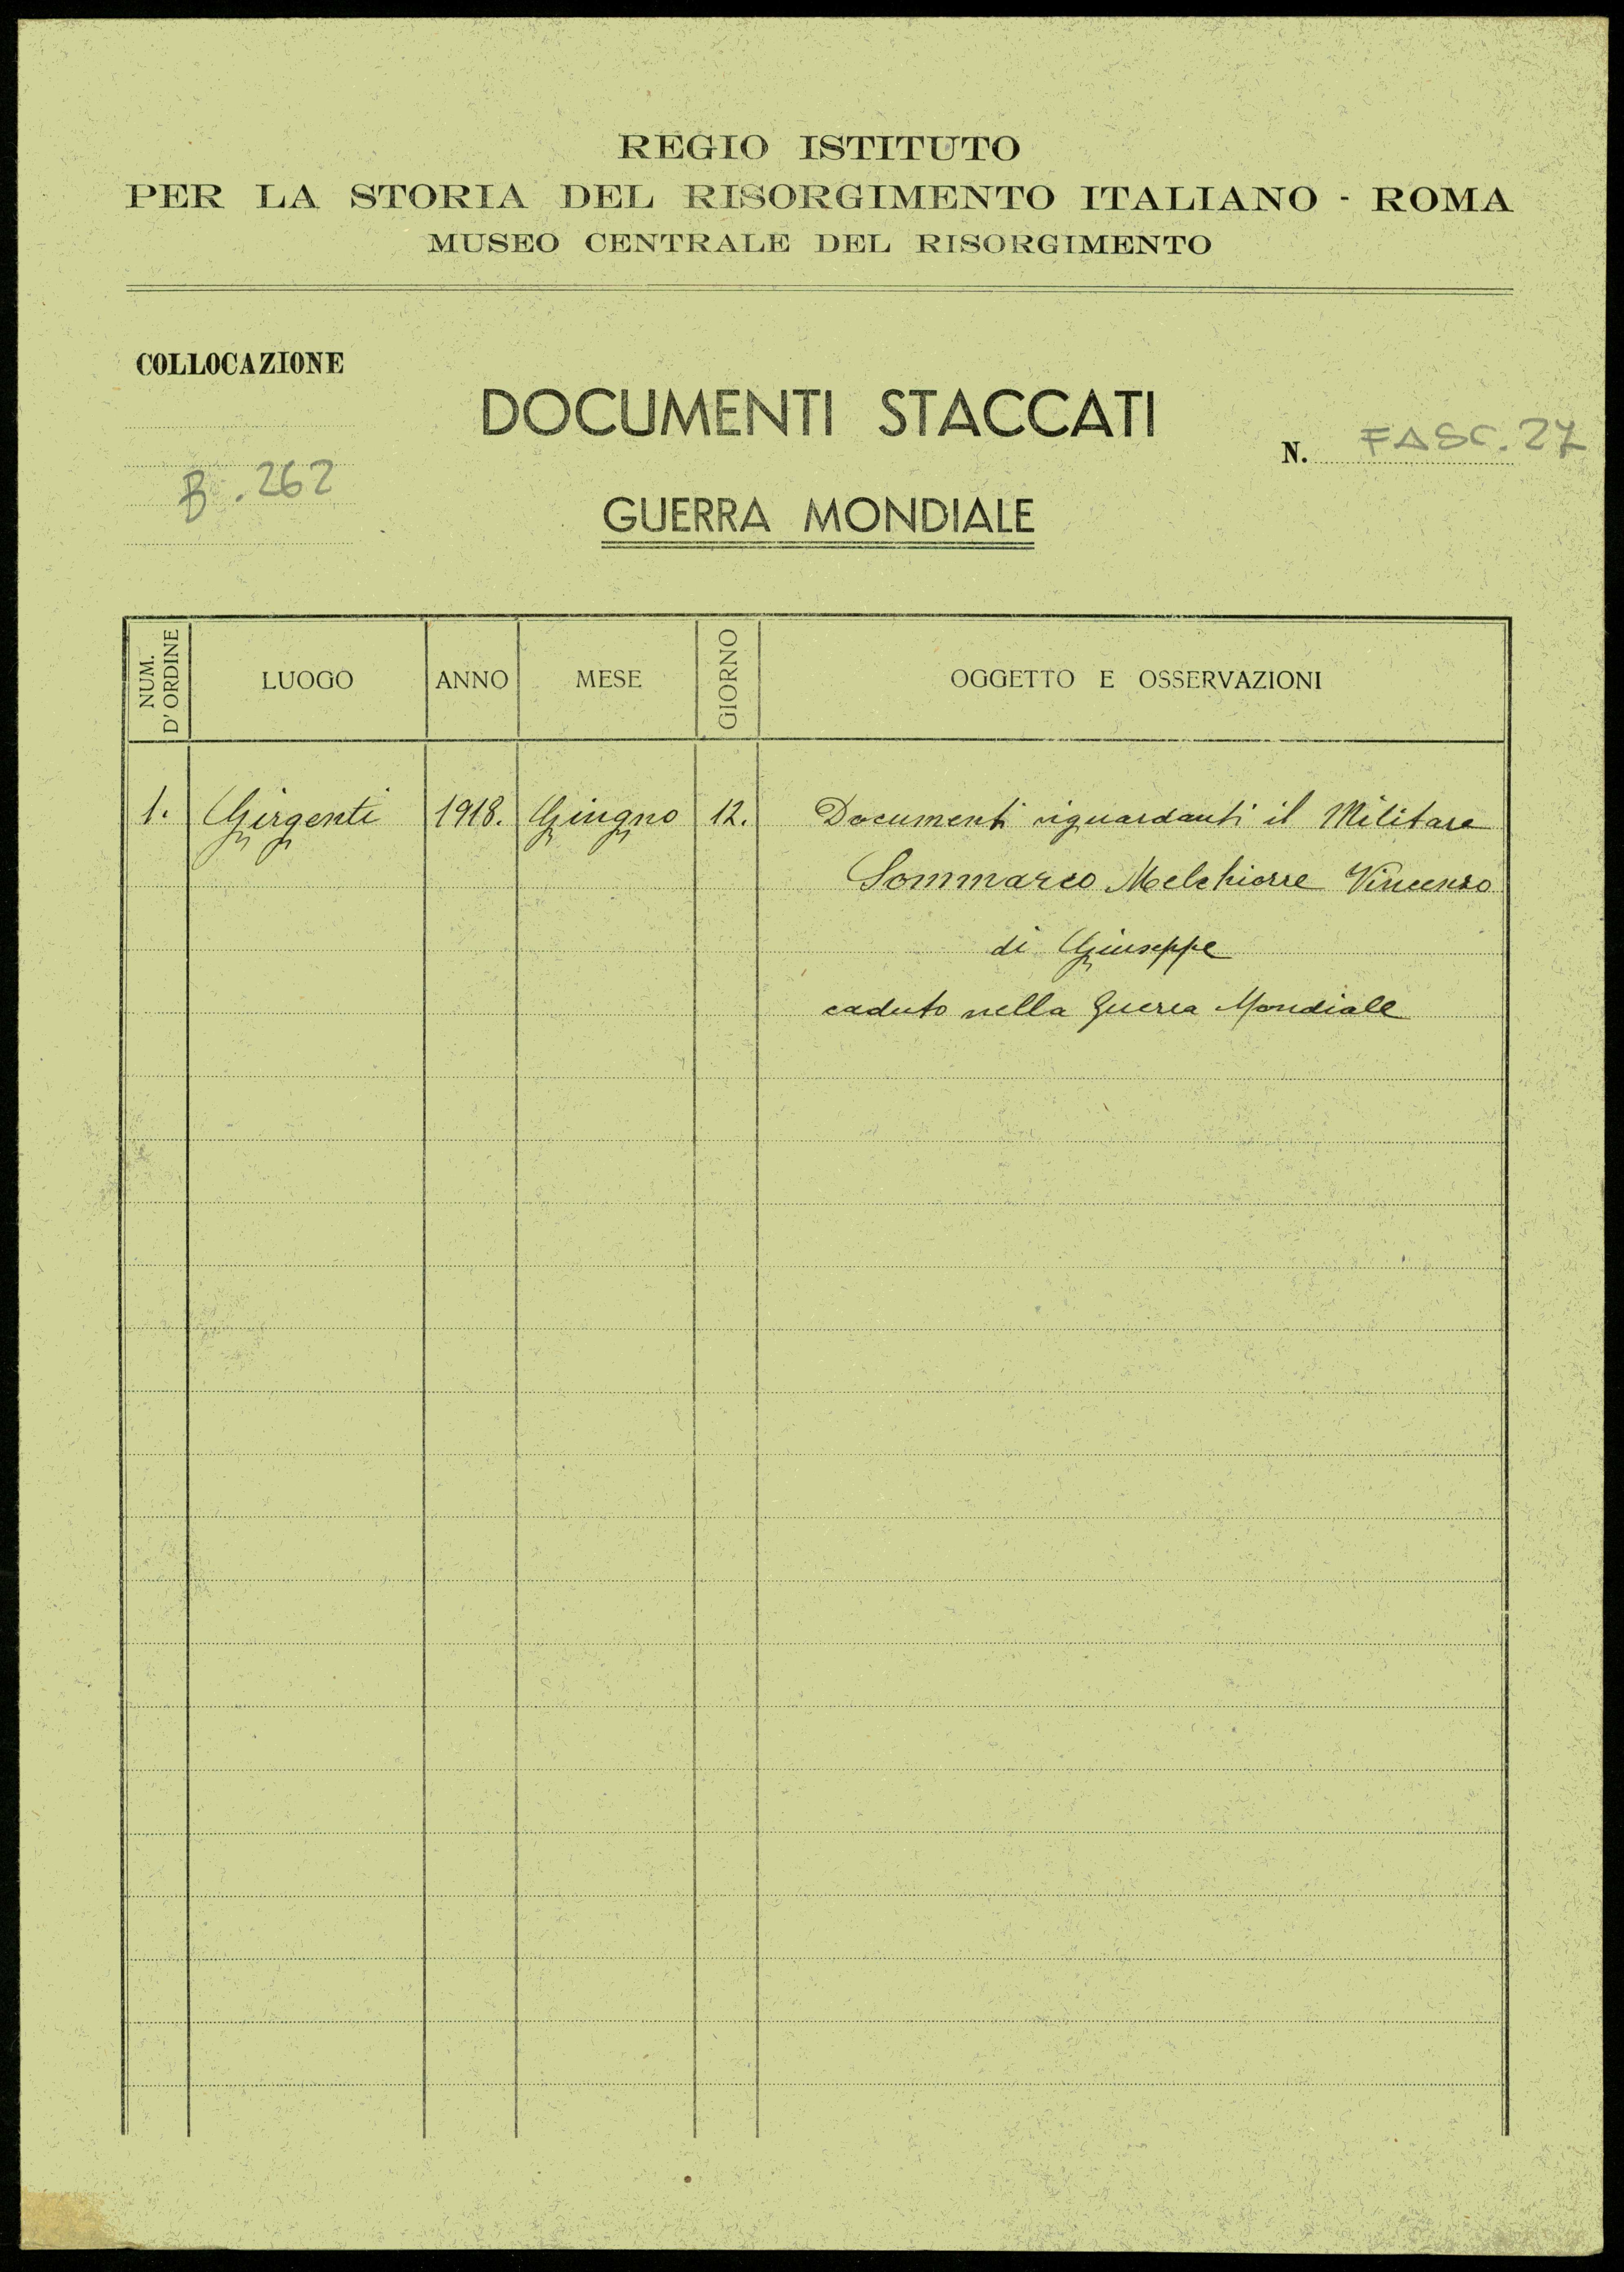 REGIO ISTITUTO
PER LA STORIA DEL RISORGIMENTO ITALIANO - ROMA
MUSEO CENTRALE DEL RISORGIMENTO
COLLOCAZIONE
B. 262
DOCUMENTI STACCATI
N. FASC. 27
GUERRA MONDIALE
NUM. D'ORDINE LUOGO ANNO MESE GIORNO OGGETTO E OSSERVAZIONI
1. Girgenti 1918. Giugno 12. Documenti riguardanti il Militare
Sommarco Melchiorre Vincenzo
di Giuseppe
caduto nella Guerra Mondiale